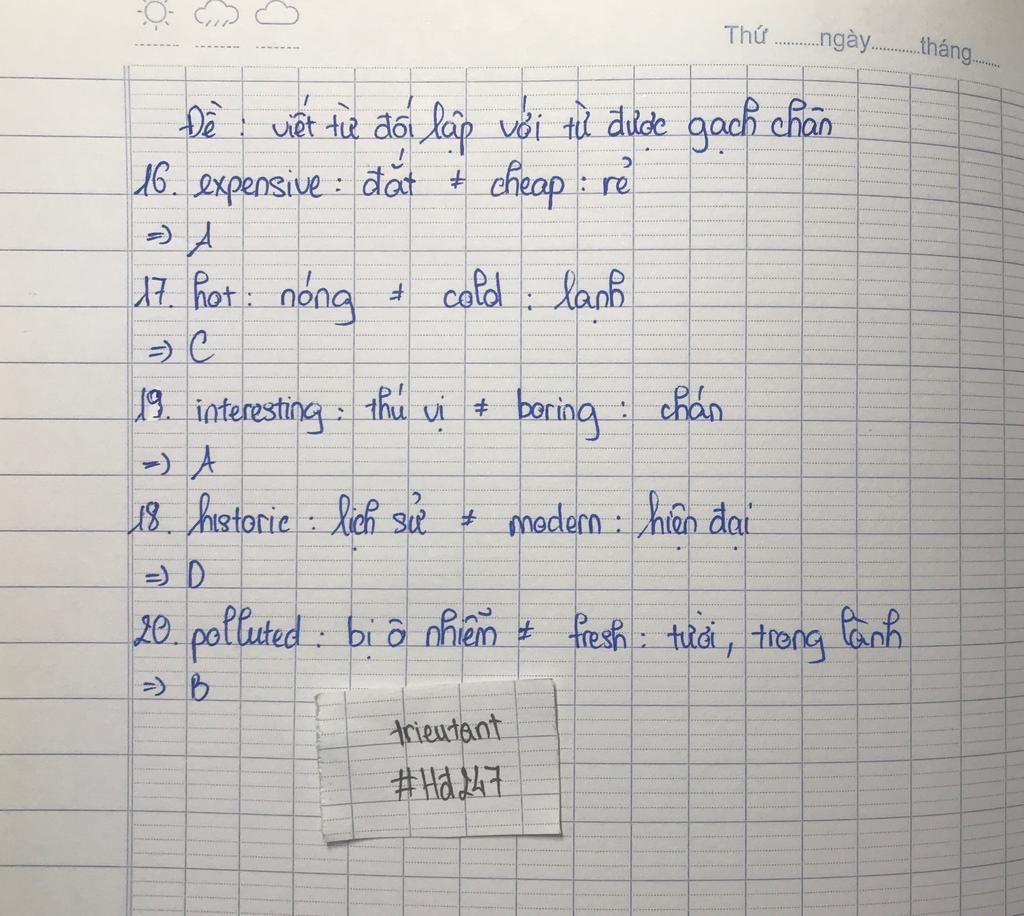 Thứ ..........ngày...........tháng......
Đề : viết từ đối lập với từ được gạch chân
16. expensive : đắt ≠ cheap : rẻ
=> A
17. hot : nóng ≠ cold : lạnh
=> C
19. interesting : thú vị ≠ boring : chán
=> A
18. historic : lịch sử ≠ modern : hiện đại
=> D
20. polluted : bị ô nhiễm ≠ fresh : tươi, trong lành
=> B
trieutant
#Hd247